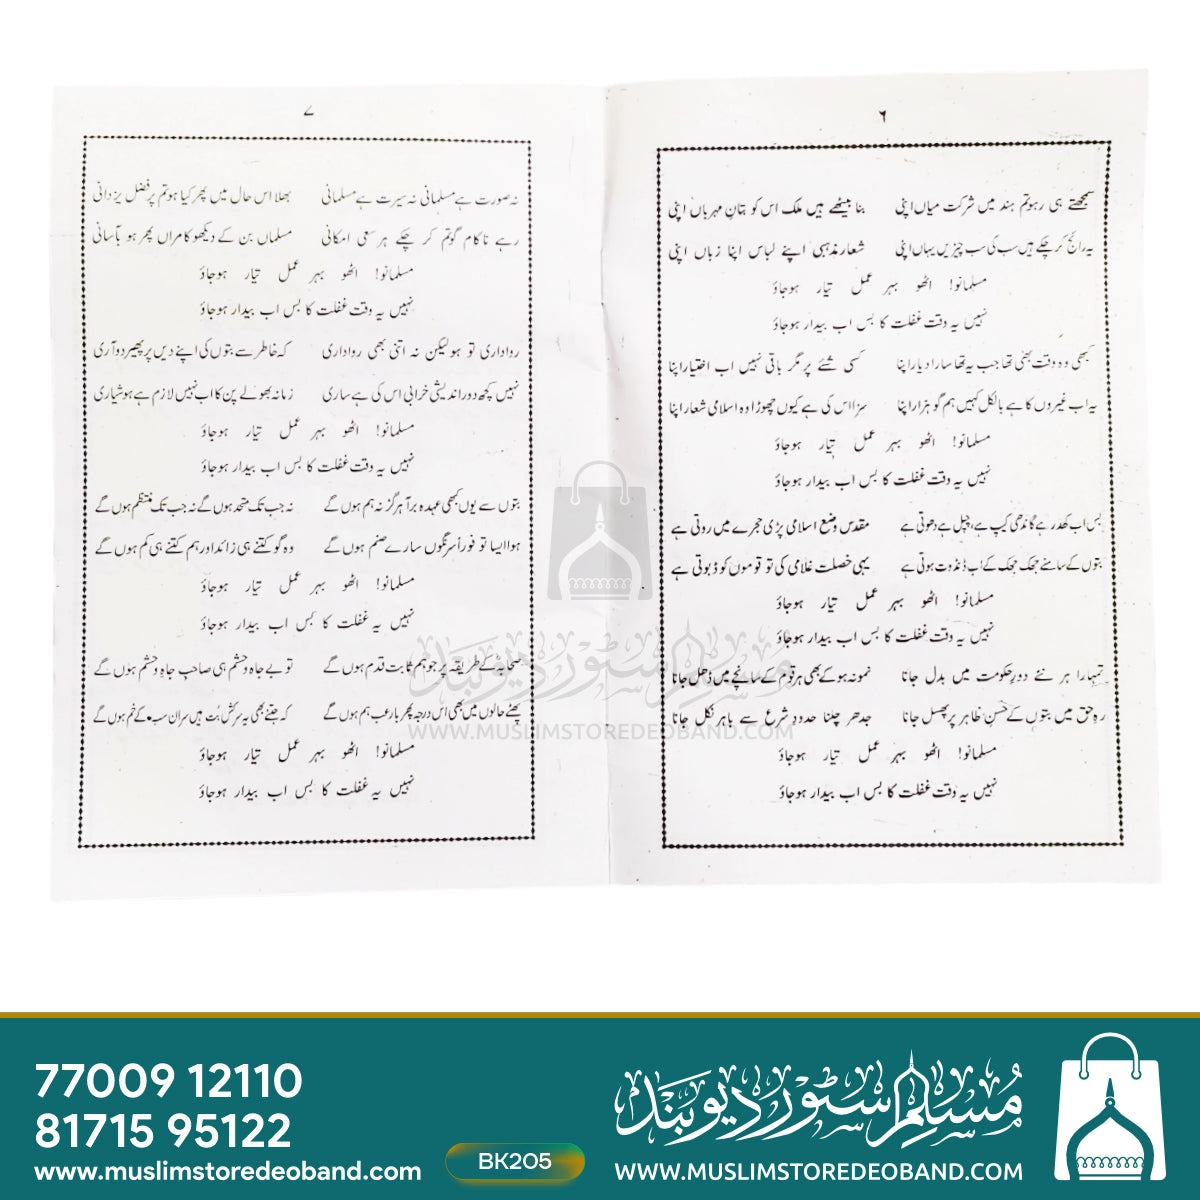 ۶
سمجھتے ہی رہو تم ہند میں شرکت میاں اپنی بنا بیٹھے ہیں ملک اس کو بتانِ مہرباں اپنی
یہ رائج کر چکے ہیں سب کی سب چیزیں یہاں اپنی شعار مذہبی اپنے لباس اپنا زباں اپنی
مسلمانو! اٹھو بہر عمل تیار ہوجاؤ
نہیں یہ وقت غفلت کا بس اب بیدار ہوجاؤ
کبھی وہ وقت بھی تھا جب یہ تھا سارا دیار اپنا کسی شئے پر مگر باقی نہیں اب اختیار اپنا
یہ اب غیروں کا ہے بالکل کہیں ہم گو ہزار اپنا سزا اس کی ہے کیوں چھوڑا وہ اسلامی شعار اپنا
مسلمانو! اٹھو بہر عمل تیار ہوجاؤ
نہیں یہ وقت غفلت کا بس اب بیدار ہوجاؤ
بس اب کھدر ہے گاندھی کیپ ہے، چپل ہے دھوتی ہے مقدس وضع اسلامی پڑی حجرے میں روتی ہے
بتوں کے سامنے جھک جھک کے اب ڈنڈوت ہوتی ہے یہی خصلت غلامی کی تو قوموں کو ڈبوتی ہے
مسلمانو! اٹھو بہر عمل تیار ہوجاؤ
نہیں یہ وقت غفلت کا بس اب بیدار ہوجاؤ
تمہارا ہر نئے دورِ حکومت میں بدل جانا نمونہ ہو کے بھی ہر قوم کے سانچے میں ڈھل جانا
رہِ حق میں بتوں کے حُسنِ ظاہر پر پھسل جانا جدھر چلنا حدودِ شرع سے باہر نکل جانا
مسلمانو! اٹھو بہر عمل تیار ہوجاؤ
نہیں یہ وقت غفلت کا بس اب بیدار ہوجاؤ
۷
نہ صورت ہے مسلمانی نہ سیرت ہے مسلمانی بھلا اس حال میں پھر کیا ہو تم پر فضل یزدانی
رہے ناکام گو تم کر چکے ہر سعی امکانی مسلماں بن کے دیکھو کامراں پھر ہو بآسانی
مسلمانو! اٹھو بہر عمل تیار ہوجاؤ
نہیں یہ وقت غفلت کا بس اب بیدار ہوجاؤ
رواداری تو ہو لیکن نہ اتنی بھی رواداری کہ خاطر سے بتوں کی اپنے دیں پر پھیر دو آری
نہیں کچھ دور اندیشی خرابی اس کی ہے ساری زمانہ بھولے پن کا اب نہیں لازم ہے ہوشیاری
مسلمانو! اٹھو بہر عمل تیار ہوجاؤ
نہیں یہ وقت غفلت کا بس اب بیدار ہوجاؤ
بتوں سے یوں کبھی عہدہ برآ ہرگز نہ ہم ہوں گے نہ جب تک متحد ہوں گے نہ جب تک منتظم ہوں گے
ہوا ایسا تو فوراً سرنگوں سارے صنم ہوں گے وہ گو کتنے ہی زائد اور ہم کتنے ہی کم ہوں گے
مسلمانو! اٹھو بہر عمل تیار ہوجاؤ
نہیں یہ غفلت کا بس اب بیدار ہوجاؤ
صحابہؓ کے طریقہ پر جو ہم ثابت قدم ہوں گے تو بے جاہ و حشم ہی صاحب جاہ و حشم ہوں گے
پھٹے حالوں میں بھی اس درجہ پھر بارعب ہم ہوں گے کہ جتنے بھی یہ سرکش بُت ہیں سر ان سب کے خم ہوں گے
مسلمانو! اٹھو بہر عمل تیار ہوجاؤ
نہیں یہ غفلت کا بس اب بیدار ہوجاؤ
مسلم سٹور دیوبند
WWW.MUSLIMSTOREDEOBAND.COM
77009 12110
81715 95122
www.muslimstoredeoband.com
BK205
مسلم سٹور دیوبند
WWW.MUSLIMSTOREDEOBAND.COM